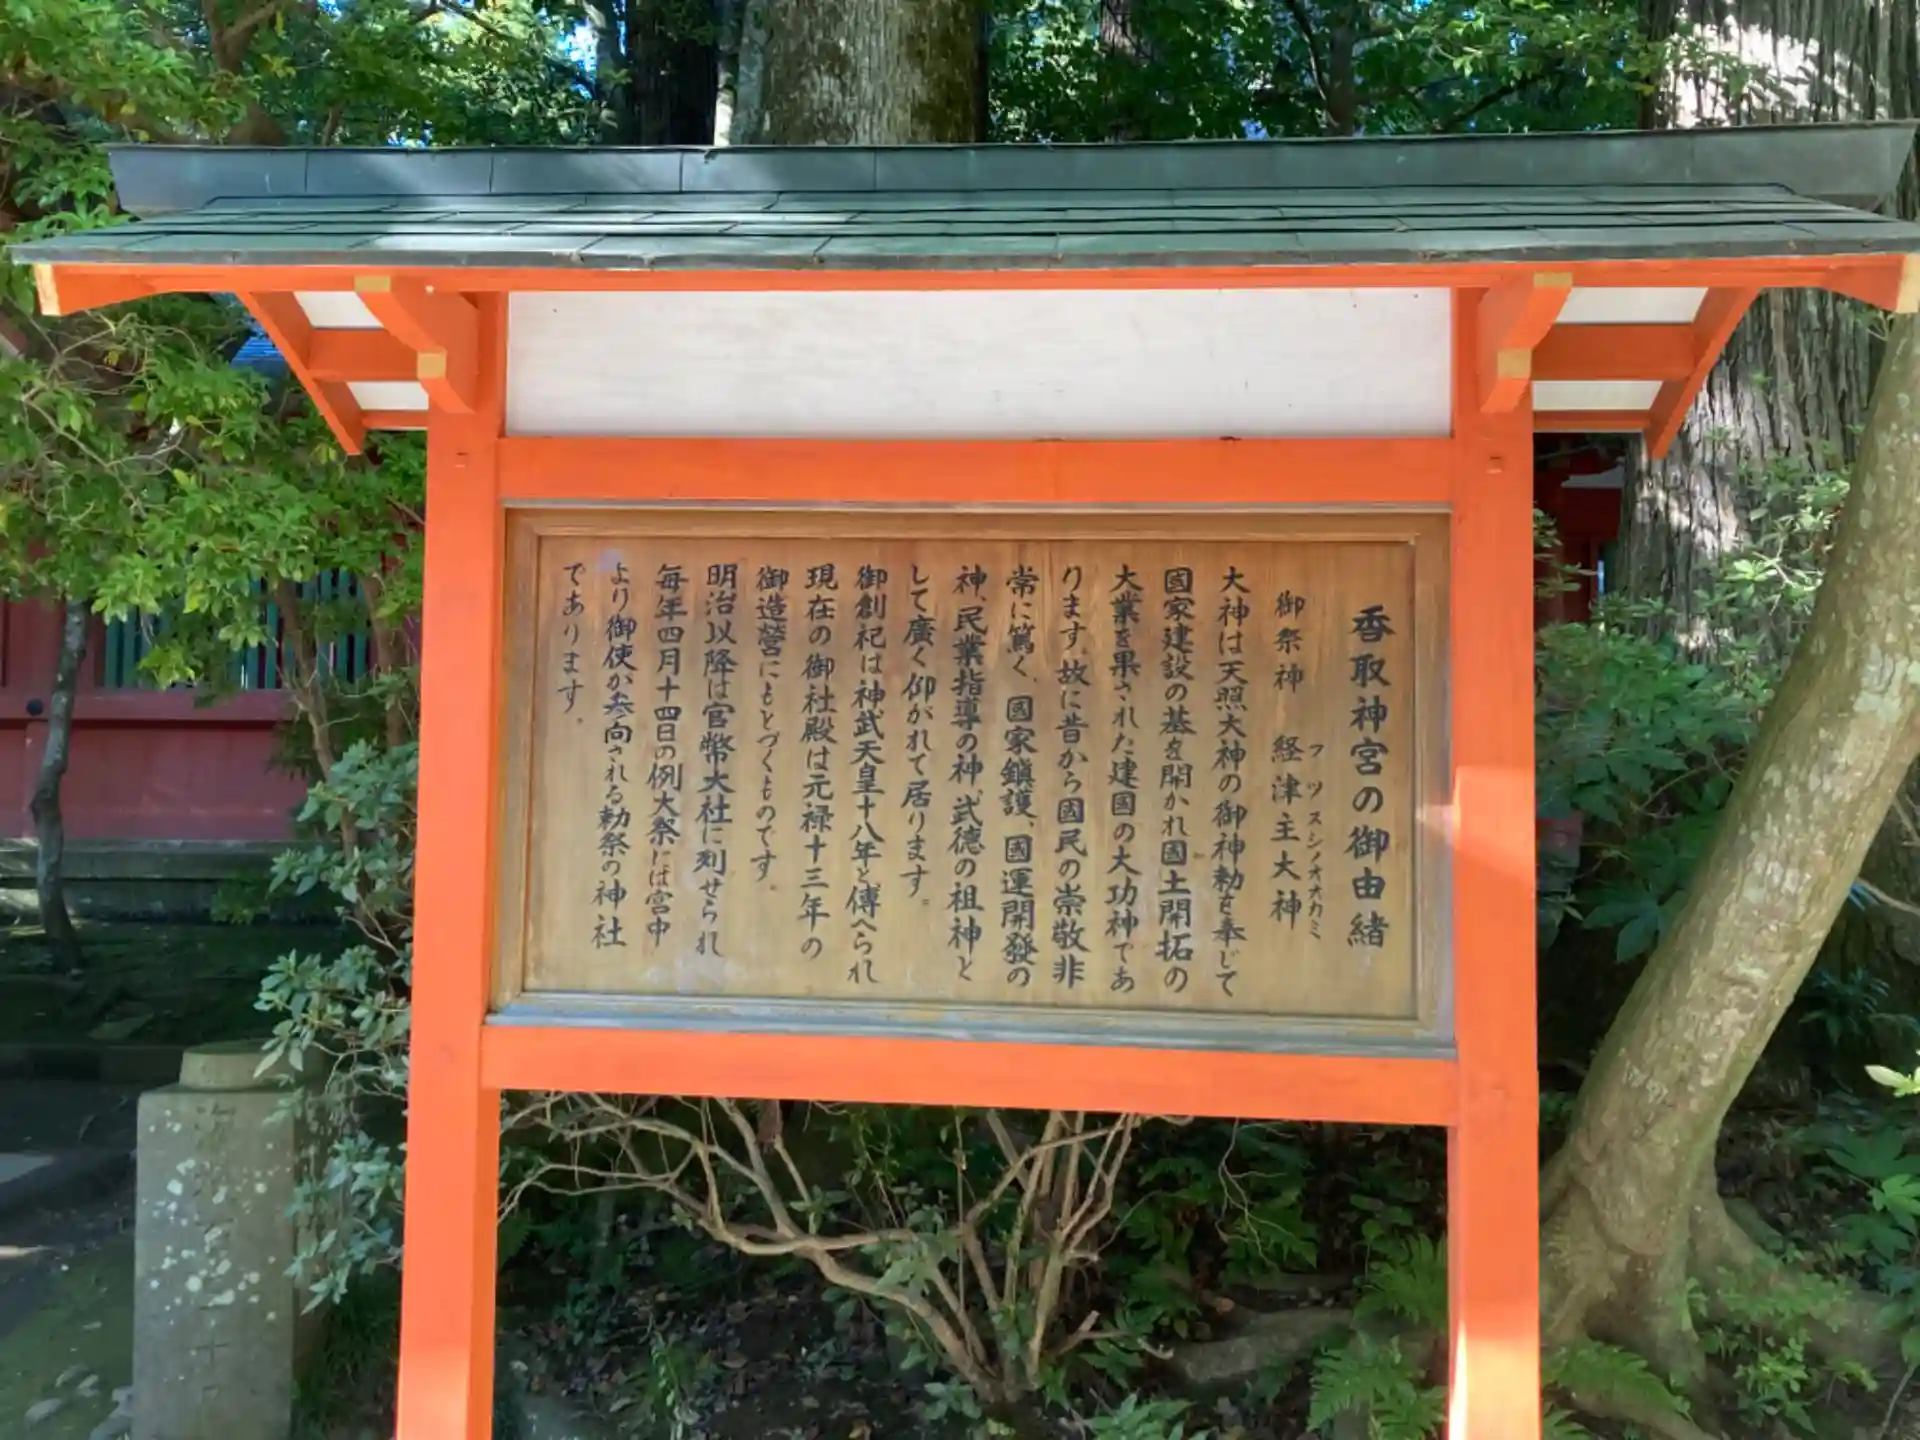 香取神宮の御由緒
御祭神 経津主大神
フツヌシノオオカミ
大神は天照大神の御神勅を奉じて
國家建設の基を開かれ國土開拓の
大業を果された建國の大功神であ
ります。故に昔から國民の崇敬非
常に篤く、國家鎭護、國運開發の
神、民業指導の神、武徳の祖神と
して廣く仰がれて居ります。
御創祀は神武天皇十八年と傳へられ
現在の御社殿は元禄十三年の
御造營にもとづくものです。
明治以降は官幣大社に列せられ
毎年四月十四日の例大祭には宮中
より御使が参向される勅祭の神社
であります。